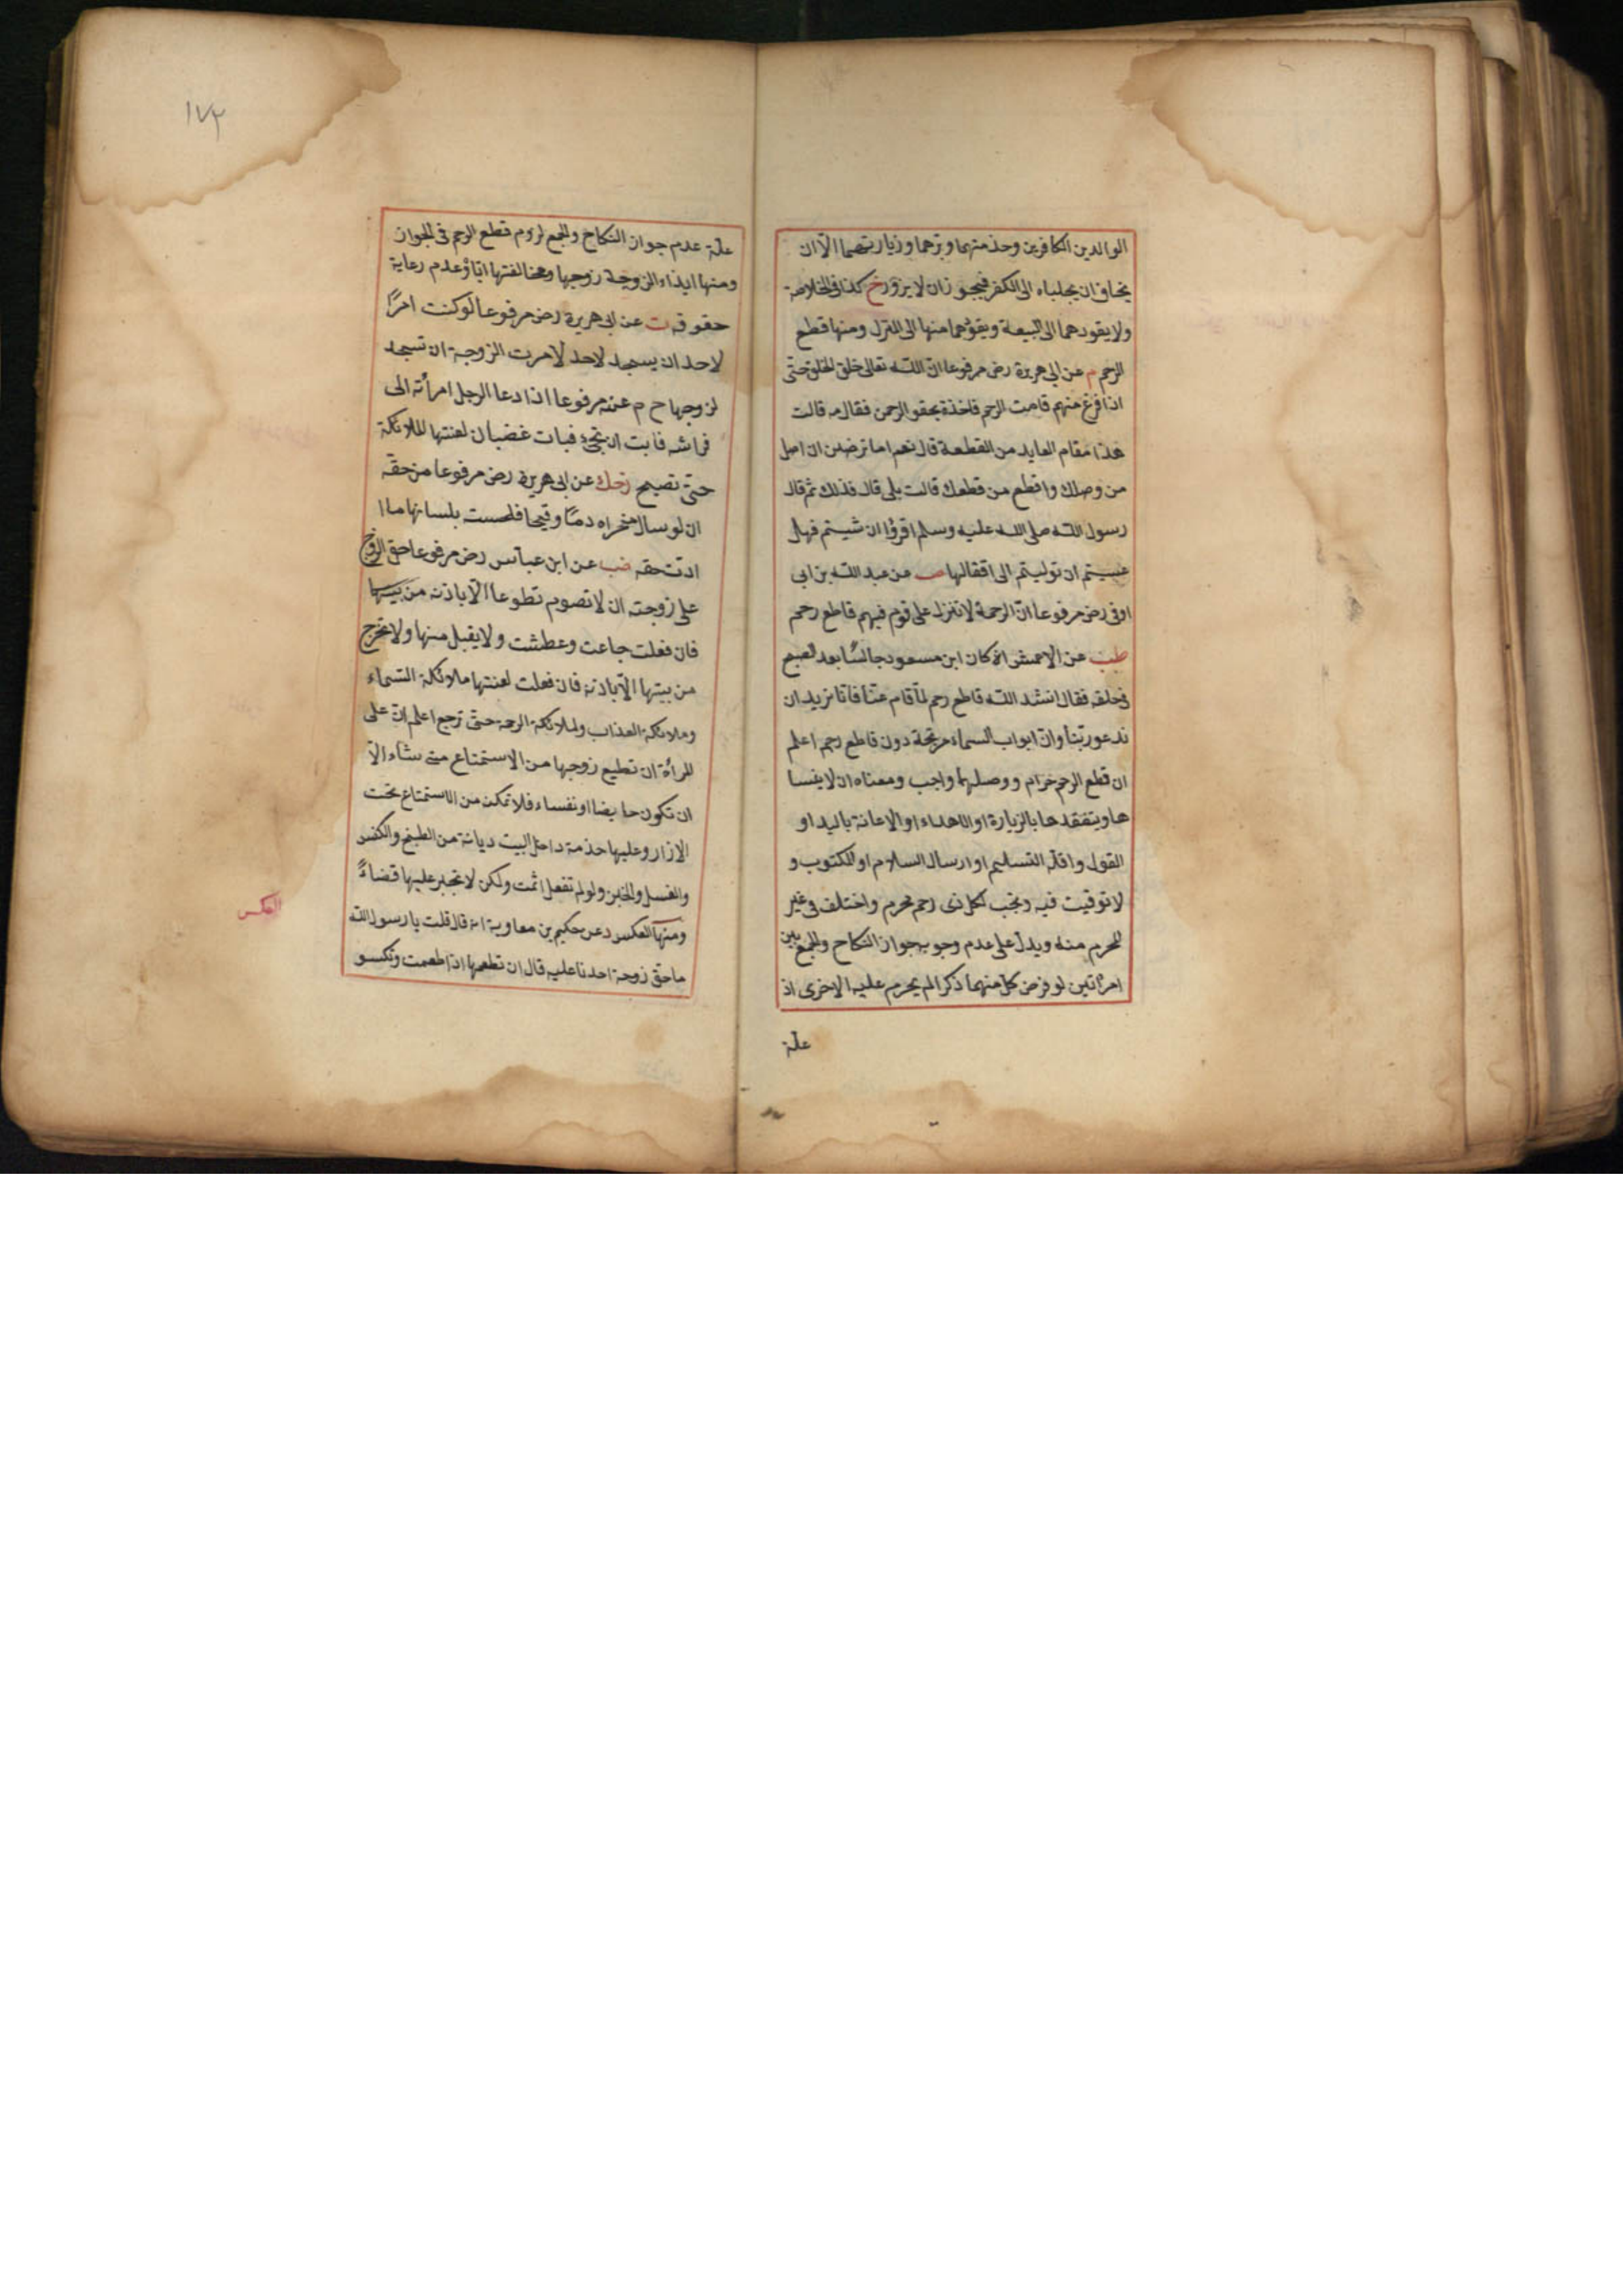 الوالدين الكافرين وخدمتهما وبرهما وزيارتهما الا ان
يخاف ان يجلباه الى الكفر فيجوز ان لا يزور خ كذا فى الخلاصة
ولا يقودهما الى البيعة ويقودهما منها الى المنزل ومنها قطع
الرحم م عن ابى هريرة رض مرفوعا ان الله تعالى خلق الخلق حتى
اذا فرغ منهم قامت الرحم فاخذة بحقو الرحمن فقال مه قالت
هذا مقام العايد من القطعة قال نعم اما ترضين ان اصل
من وصلك واقطع من قطعك قالت بلى قال فذلك ثم قال
رسول الله صلى الله عليه وسلم اقرؤا ان شيتم فهل
عسيتم ان توليتم الى اقفالها صب عن عبد الله بن ابى
اوفى رض مرفوعا ان الرحمة لا تنزل على قوم فيهم قاطع رحم
طب عن الاعمش انه كان ابن مسعود جالسا بعد الصبح
فى حلقه فقال انشد الله قاطع رحم لما قام عنا فانا نريد ان
ندعو ربنا وان ابواب السماء مرتجة دون قاطع رحم اعلم
ان قطع الرحم حرام ووصلها واجب ومعناه ان لا ينسا
ها ويتفقدها بالزيارة او الاهداء او الاعانة باليد او
القول واقله التسليم او ارسال السلام او المكتوب و
لا توقيت فيه ويجب لكل ذى رحم محرم واختلف فى غير
المحرم منه ويدل على عدم وجوبه جواز النكاح والجمع بين
امرأتين لو فرض كل منهما ذكرا لم يحرم عليه الاخرى اذ
علة
١٧٢
علة عدم جواز النكاح والجمع لزوم قطع الرحم فى الجواز
ومنها ايذاء الزوجة زوجها ومخالفتها اياه وعدم رعاية
حقوقه ت عن ابى هريرة رض مرفوعا لو كنت امرًا
لاحد ان يسجد لاحد لامرت الزوجة ان تسجد
لزوجها خ م عنه مرفوعا اذا دعا الرجل امرأته الى
فراشه فابت ان تجئ فبات غضبان لعنتها الملائكة
حتى تصبح زحك عن ابى هريرة رض مرفوعا من حقه
ان لو سال منخراه دما وقيحا فلحست بلسانها ما ا
ادت حقه طب عن ابن عباس رض مرفوعا حق الزوج
على زوجته ان لا تصوم تطوعا الا باذنه من بيتها
فان فعلت جاعت وعطشت ولا يقبل منها ولا تخرج
من بيتها الا باذنه فان فعلت لعنتها ملائكة السماء
وملائكة العذاب وملائكة الرحمة حتى ترجع اعلم ان على
المرأة ان تطيع زوجها من الاستمتاع متى شاء الا
ان تكون حايضا او نفساء فلا تمكن من الاستمتاع تحت
الازار وعليها خدمة داخل البيت ديانة من الطبخ والكنس
والغسل والخبز ولو لم تفعل اثمت ولكن لا تجبر عليها قضاءً
ومنها العكس د عن حكيم بن معاوية انه قال قلت يا رسول الله
ما حق زوجة احدنا عليه قال ان تطعمها اذا طعمت وتكسو
العكس